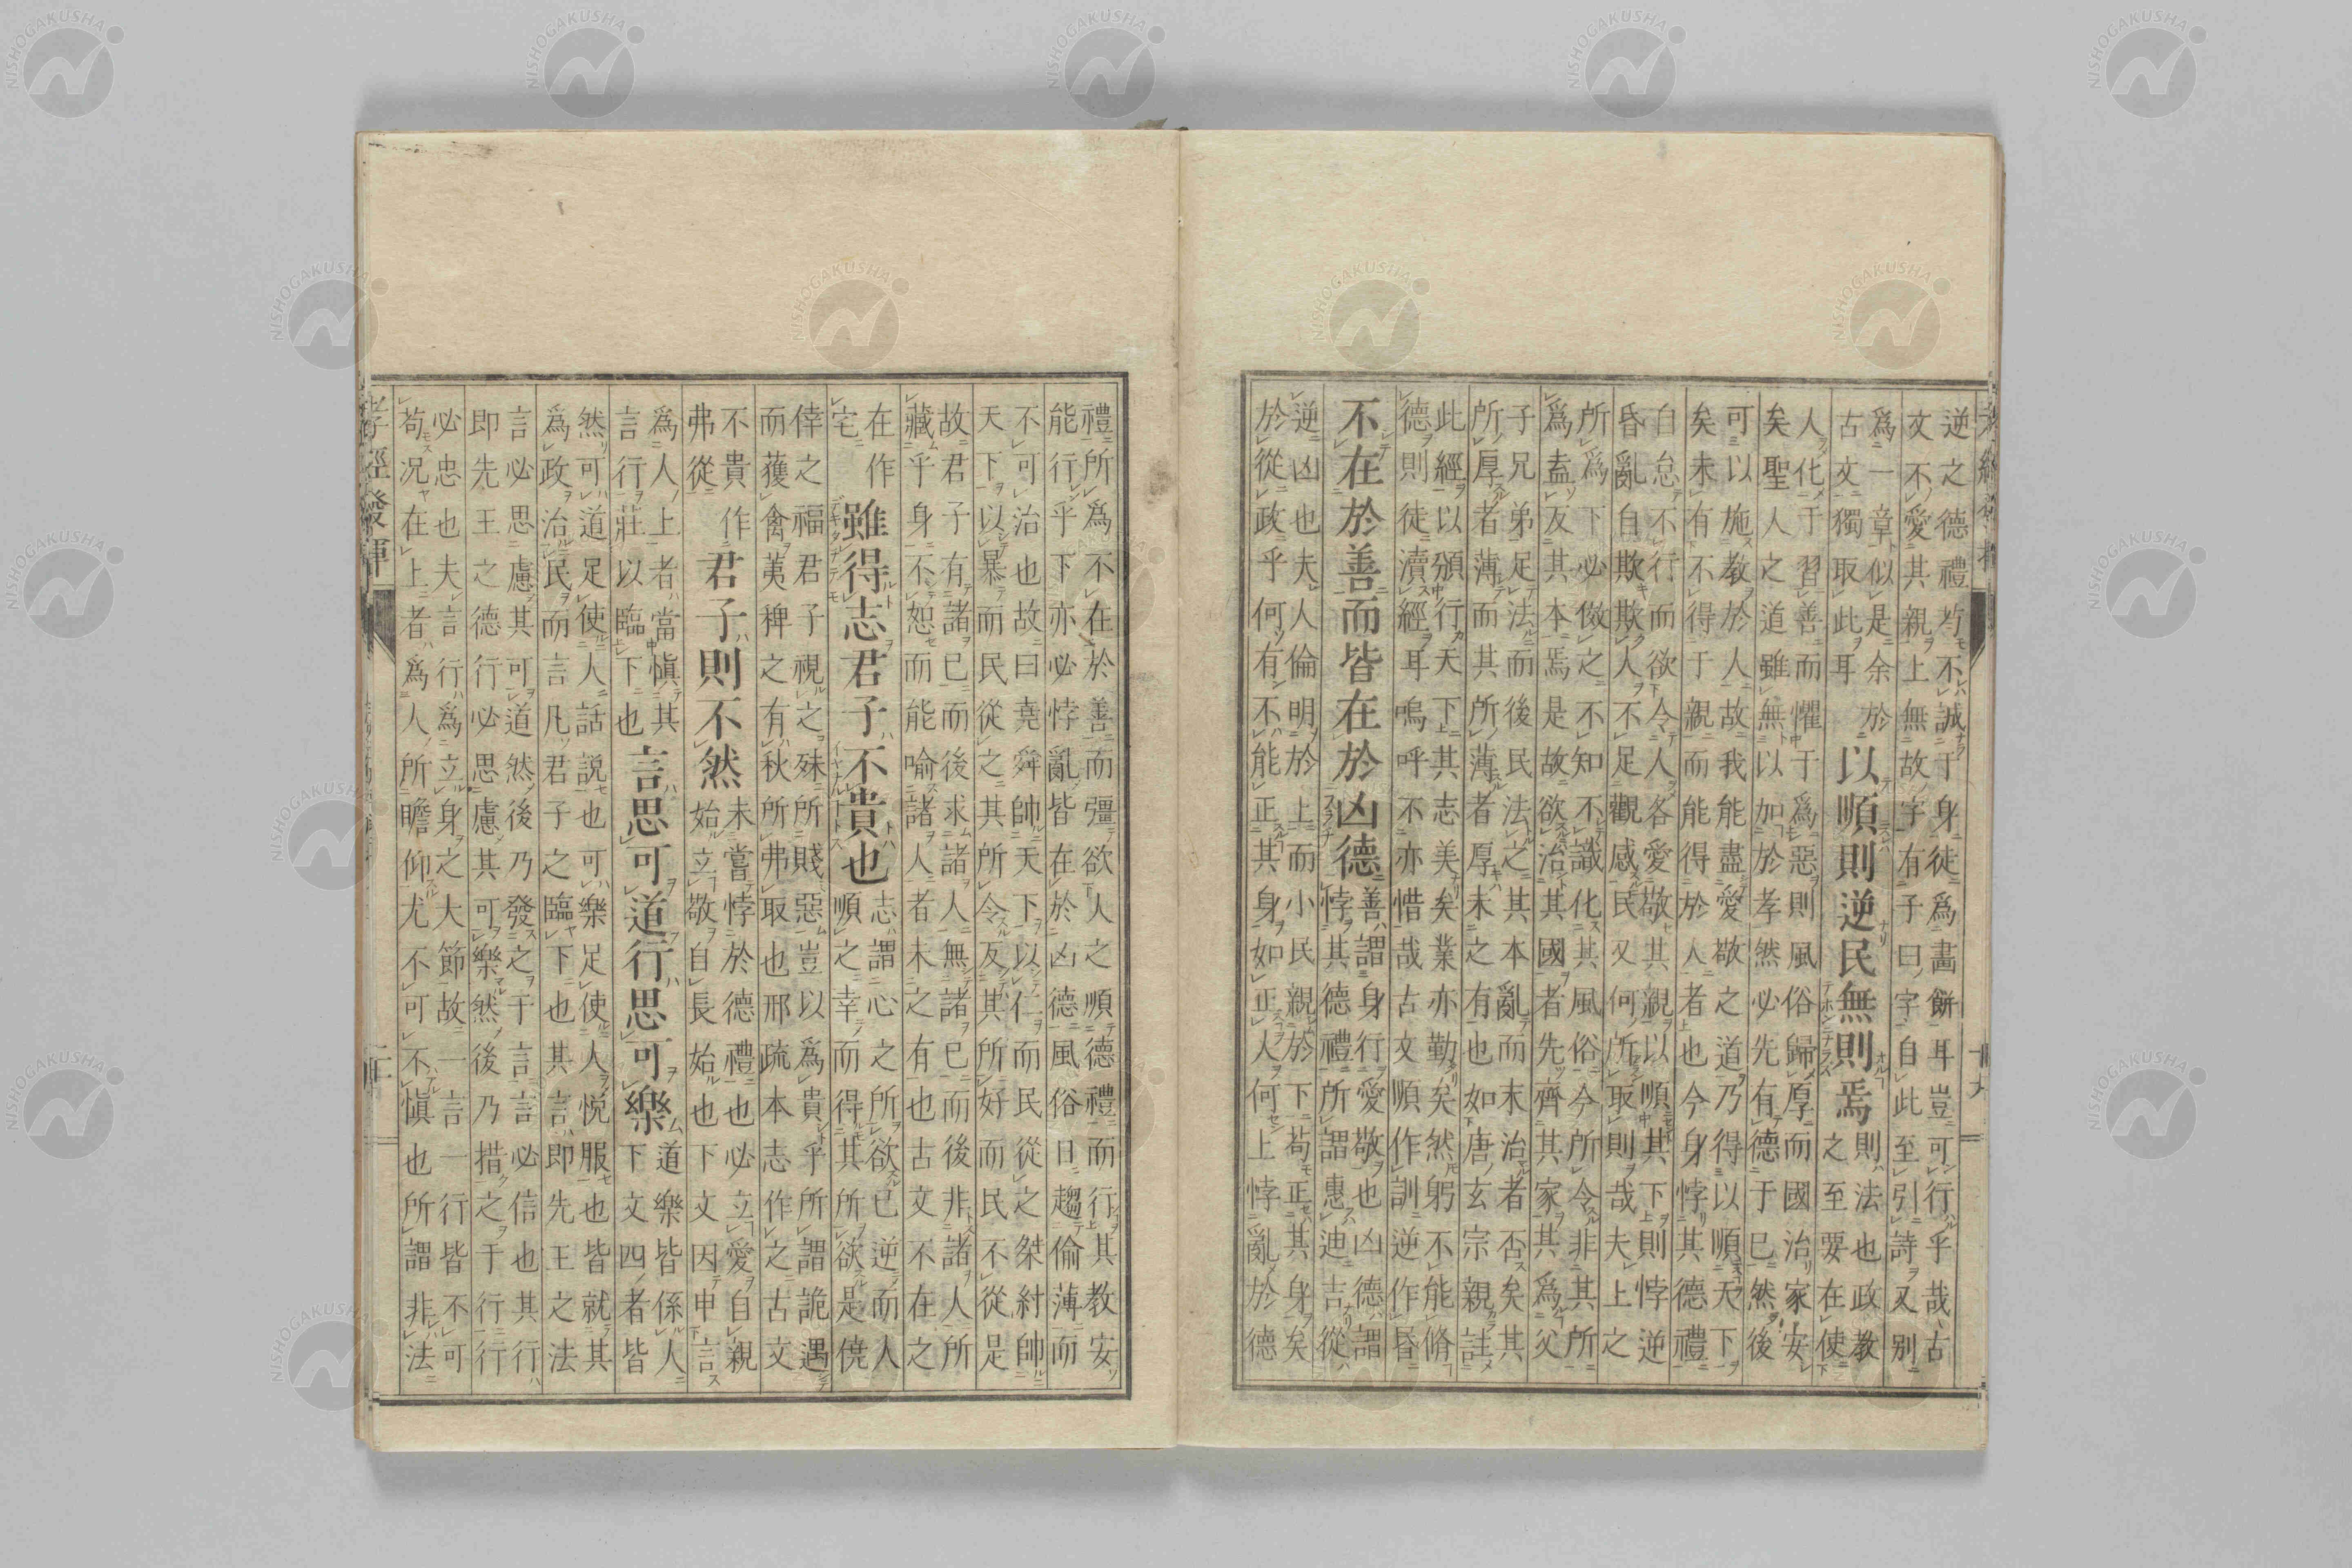 逆之德禮苟不誠于身徒爲畫餅耳豈可行乎哉古
文不愛其親上無故字有子曰字自此至引詩又別
爲一章似是余於
古文獨取此耳
以順則逆民無則焉
則法也政教
之至要在使
人化于習善而懼于爲惡則風俗歸厚而國治家安
矣聖人之道雖無以加於孝然必先有德于已然後
可以施教於人故我能盡愛敬之道乃得以順天下
矣未有不得于親而能得於人者也今身悖其德禮
自怠不行而欲令人各愛敬其親以順其下則悖逆
昏亂自欺欺人不足觀感民又何所取則哉夫上之
所爲下必傚之不知不識化其風俗今所令非其所
爲盍反其本焉是故欲治其國者先齊其家其爲父
子兄弟足法而後民法之其本亂而末治者否矣其
所厚者薄而其所薄者厚未之有也如唐玄宗親註
此經以頒行天下其志美矣業亦勤矣然躬不能脩
德則徒瀆經耳嗚呼不亦惜哉古文順作訓逆作昏
不在於善而皆在於凶德
善謂身行愛敬也凶德謂
悖其德禮所謂惠迪吉從
逆凶也夫人倫明於上而小民親於下苟正其身矣
於從政乎何有不能正其身如正人何上悖亂於德
禮所爲不在於善而彊欲人之順德禮而行其教安
能行乎下亦必悖亂皆在於凶德風俗日趨偷薄而
不可治也故曰堯舜帥天下以仁而民從之桀紂帥
天下以暴而民從之其所令反其所好而民不從是
故君子有諸已而後求諸人無諸已而後非諸人所
藏乎身不恕而能喻諸人者未之有也古文不在之
在作
宅
雖得志君子不貴也
志謂心之所欲已逆而人
順之幸而得其所欲是僥
倖之福君子視之殊所賤惡豈以爲貴乎所謂詭遇
而獲禽荑稗之有秋所弗取也邢疏本志作之古文
不貴作
弗從
君子則不然
未嘗悖於德禮也必立愛自親
始立敬自長始也下文因申言
爲人上者當愼其
言行莊以臨下也
言思可道行思可樂
道樂皆係人
下文四者皆
然可道足使人話説也可樂足使人悦服也皆就其
爲政治民而言凡君子之臨下也其言即先王之法
言必思慮其可道然後乃發之于言言必信也其行
即先王之德行必思慮其可樂然後乃措之于行行
必忠也夫言行爲立身之大節故一言一行皆不可
苟況在上者爲人所瞻仰尤不可不愼也所謂非法
孝經發揮
NISHOGAKUSHA